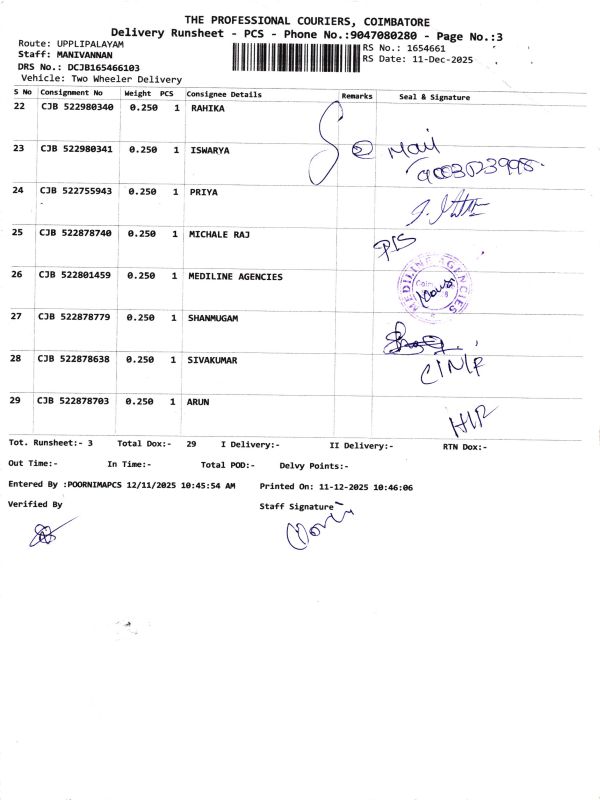 THE PROFESSIONAL COURIERS, COIMBATORE
Delivery Runsheet - PCS - Phone No.:9047080280 - Page No.:3
Route: UPPLIPALAYAM
Staff: MANIVANNAN
DRS No.: DCJB165466103
Vehicle: Two Wheeler Delivery
RS No.: 1654661
RS Date: 11-Dec-2025
S No Consignment No Weight PCS Consignee Details Remarks Seal & Signature
22 CJB 522980340 0.250 1 RAHIKA
23 CJB 522980341 0.250 1 ISWARYA Mail
9003023998
24 CJB 522755943 0.250 1 PRIYA
25 CJB 522878740 0.250 1 MICHALE RAJ P15
26 CJB 522801459 0.250 1 MEDILINE AGENCIES MEDILINE AGENCIES
27 CJB 522878779 0.250 1 SHANMUGAM
28 CJB 522878638 0.250 1 SIVAKUMAR
29 CJB 522878703 0.250 1 ARUN
Tot. Runsheet:- 3 Total Dox:- 29 I Delivery:- II Delivery:- RTN Dox:-
Out Time:- In Time:- Total POD:- Delvy Points:-
Entered By :POORNIMAPCS 12/11/2025 10:45:54 AM Printed On: 11-12-2025 10:46:06
Verified By Staff Signature